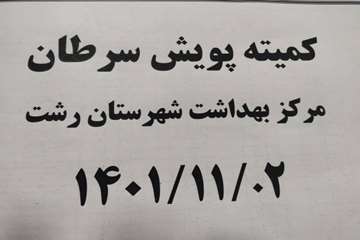 کمیته پویش سرطان
مرکز بهداشت شهرستان رشت
۱۴۰۱/۱۱/۰۲